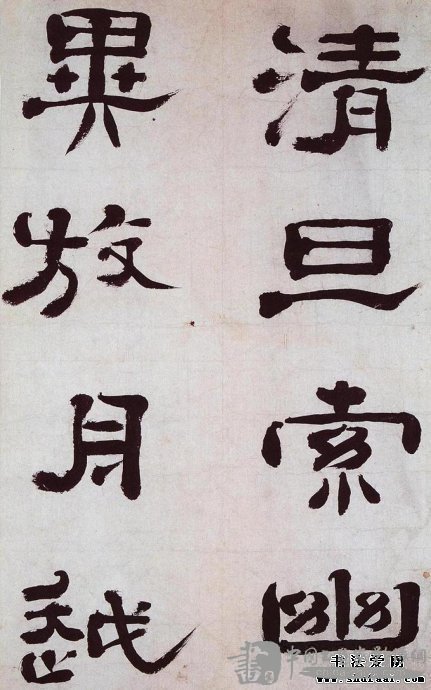 清旦索幽
異放舟越
书法爱网
www.shufaai.com